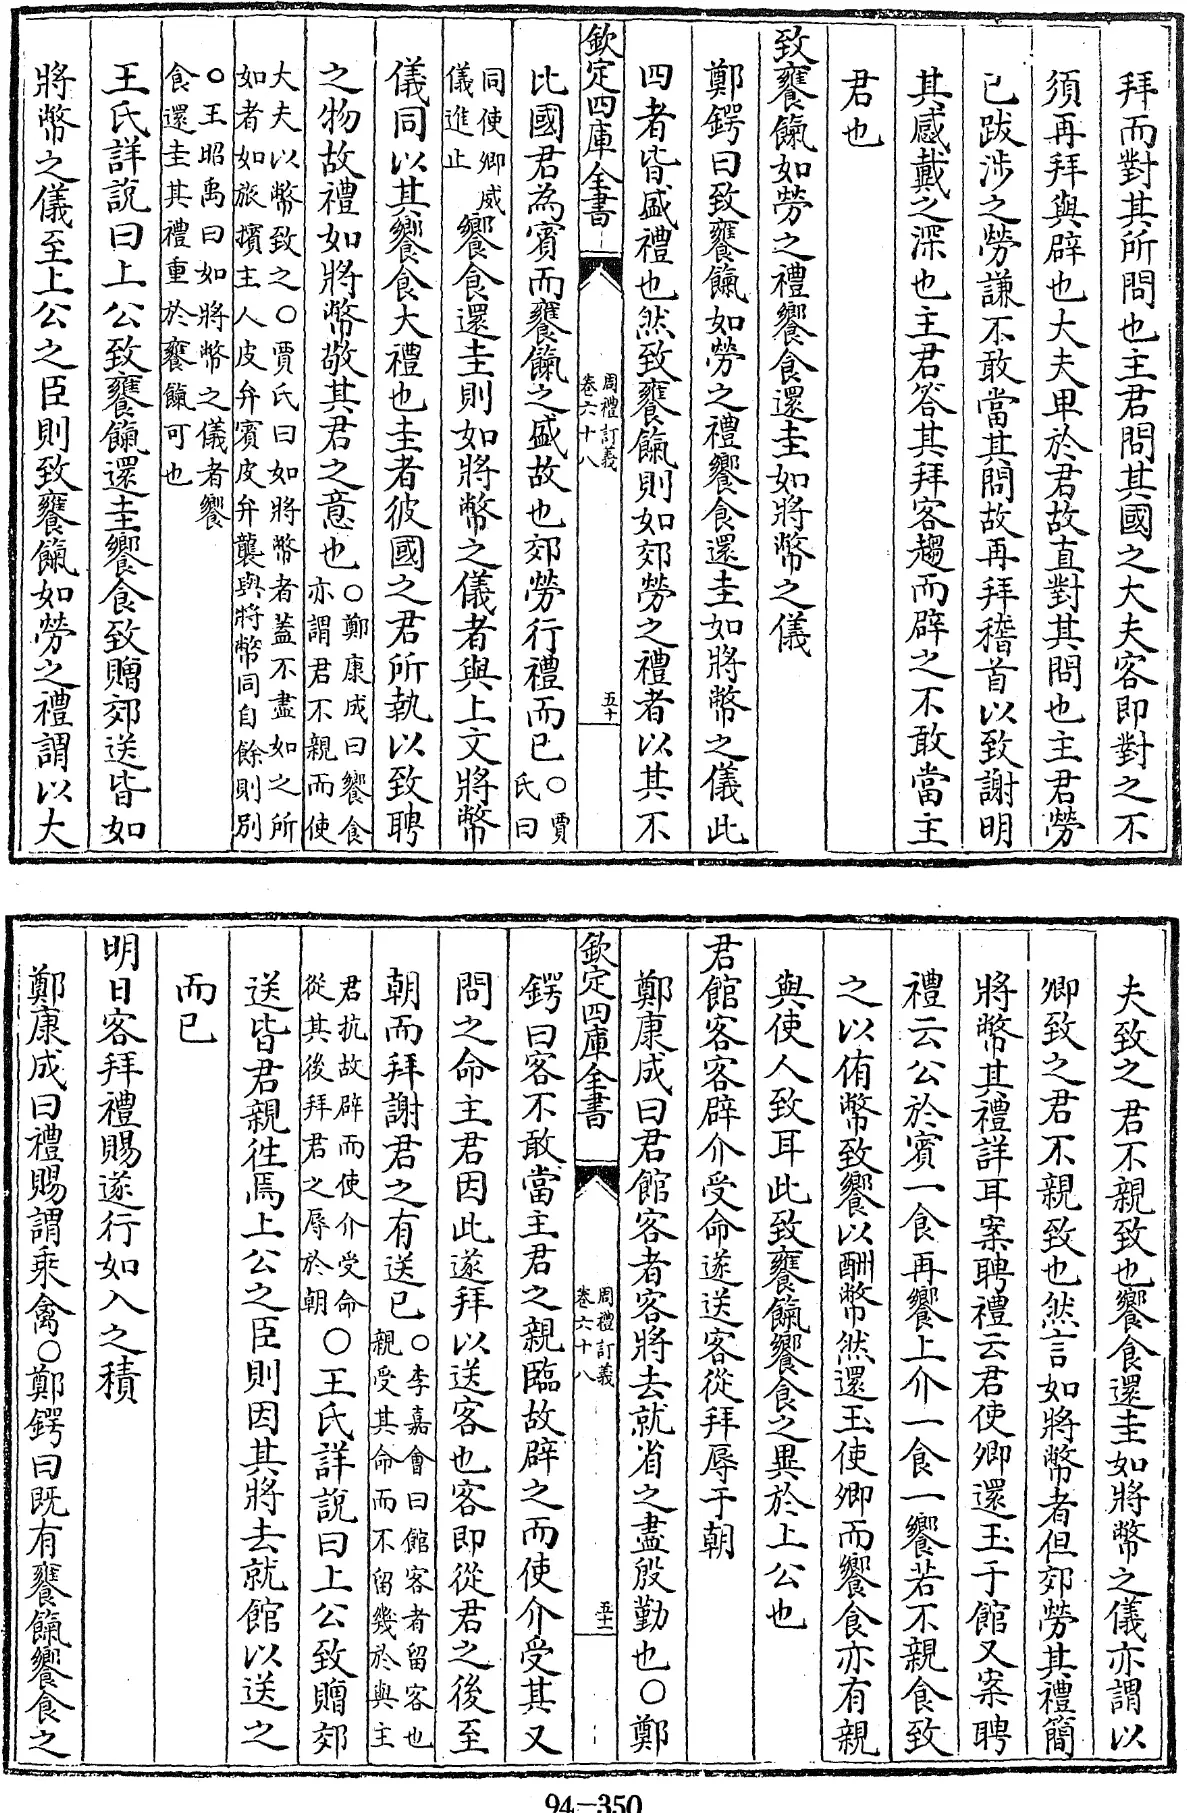 拜而對其所問也主君問其國之大夫客即對之不
須再拜與辟也大夫卑於君故直對其問也主君勞
已跋涉之勞謙不敢當其問故再拜稽首以致謝明
其感戴之深也主君答其拜客趨而辟之不敢當主
君也
致饔餼如勞之禮饗食還圭如將幣之儀
鄭鍔曰致饔餼如勞之禮饗食還圭如將幣之儀此
四者皆盛禮也然致饔餼則如郊勞之禮者以其不
欽定四庫全書
周禮訂義
卷六十八
五十
比國君為賓而饔餼之盛故也郊勞行禮而已○賈
氏曰
同使卿威
儀進止
饗食還圭則如將幣之儀者與上文將幣
儀同以其饗食大禮也圭者彼國之君所執以致聘
之物故禮如將幣敬其君之意也○鄭康成曰饗食
亦謂君不親而使
大夫以幣致之○賈氏曰如將幣者蓋不盡如之所
如者如旅擯主人皮弁賓皮弁襲與將幣同自餘則別
○王昭禹曰如將幣之儀者饗
食還圭其禮重於饔餼可也
王氏詳說曰上公致饔餼還圭饗食致贈郊送皆如
將幣之儀至上公之臣則致饔餼如勞之禮謂以大
夫致之君不親致也饗食還圭如將幣之儀亦謂以
卿致之君不親致也然言如將幣者但郊勞其禮簡
將幣其禮詳耳案聘禮云君使卿還玉于館又案聘
禮云公於賓一食再饗上介一食一饗若不親食致
之以侑幣致饗以酬幣然還玉使卿而饗食亦有親
與使人致耳此致饔餼饗食之異於上公也
君館客客辟介受命遂送客從拜辱于朝
鄭康成曰君館客者客將去就省之盡殷勤也○鄭
欽定四庫全書
周禮訂義
卷六十八
五十一
鍔曰客不敢當主君之親臨故辟之而使介受其又
問之命主君因此遂拜以送客也客即從君之後至
朝而拜謝君之有送已○李嘉會曰館客者留客也
親受其命而不留幾於與主
君抗故辟而使介受命
從其後拜君之辱於朝
○王氏詳說曰上公致贈郊
送皆君親往焉上公之臣則因其將去就館以送之
而已
明日客拜禮賜遂行如入之積
鄭康成曰禮賜謂乘禽○鄭鍔曰既有饔餼饗食之
94-350